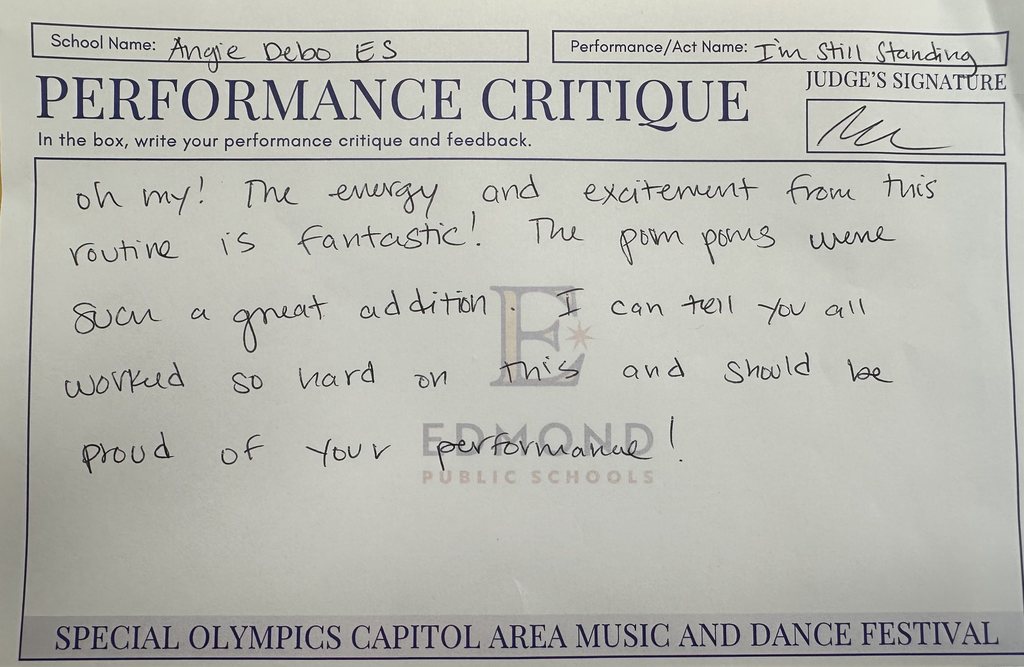 School Name: Angie Debo ES
Performance/Act Name: I'm Still Standing
PERFORMANCE CRITIQUE
JUDGE'S SIGNATURE
In the box, write your performance critique and feedback.
oh my! The energy and excitement from this
routine is fantastic! The pom poms were
such a great addition. I can tell you all
worked so hard on this and should be
proud of your performance!
E
EDMOND
PUBLIC SCHOOLS
SPECIAL OLYMPICS CAPITOL AREA MUSIC AND DANCE FESTIVAL